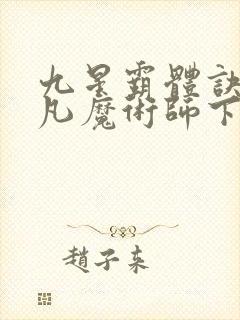 九星霸體訣
凡魔術師下
趙子來